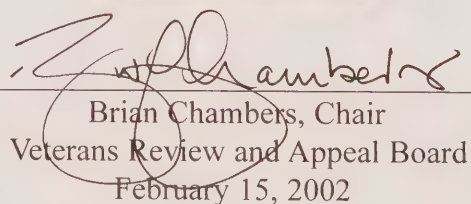 Brian Chambers
Brian Chambers, Chair
Veterans Review and Appeal Board
February 15, 2002